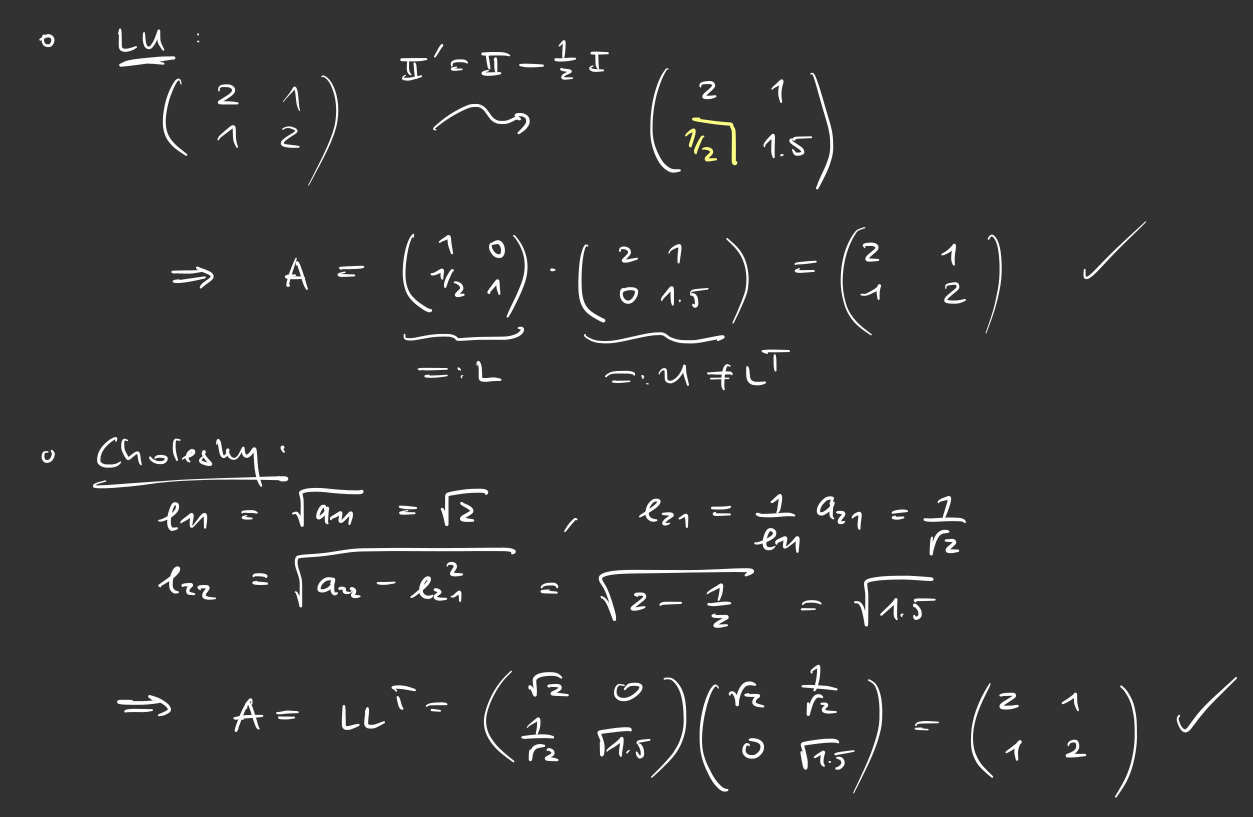 ∘ LU :
( 2 1 ; 1 2 ) II' = II − 1/2 I ⇝ ( 2 1 ; 1/2 1.5 )
⇒ A = ( 1 0 ; 1/2 1 ) · ( 2 1 ; 0 1.5 ) = ( 2 1 ; 1 2 ) ✓
=: L =: U ≠ L^T
∘ Cholesky :
l₁₁ = √a₁₁ = √2 , l₂₁ = 1/l₁₁ a₂₁ = 1/√2
l₂₂ = √(a₂₂ − l₂₁²) = √(2 − 1/2) = √1.5
⇒ A = LL^T = ( √2 0 ; 1/√2 √1.5 ) ( √2 1/√2 ; 0 √1.5 ) = ( 2 1 ; 1 2 ) ✓